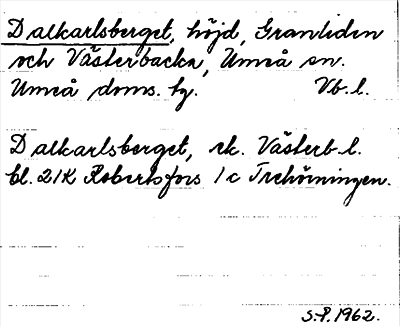 Dalkarlsberget, höjd, Granliden
och Västerbacka, Umeå sn.
Umeå doms. hg. Vb. l.
Dalkarlsberget, ek. Västerb. l.
bl. 21K Robertsfors 1c Trehörningen.
S.P. 1962.